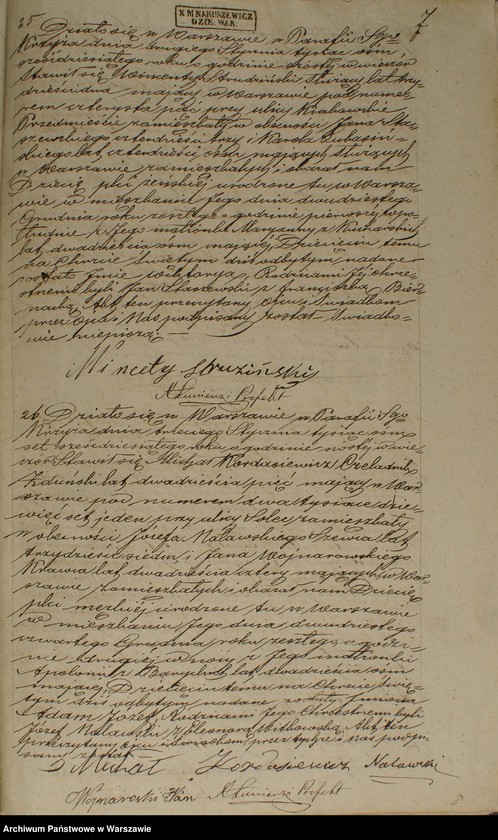 X M NARUSZEWICZ
DZIE. WAR.
7
25 Działo się w Warszawie w Parafii Sgo
Krzyża dnia drugiego Stycznia tysiąc ośm
set sześćdziesiątego roku o godzinie szóstej w wieczor
Stawił się Wincenty Strudziński służący lat trzy
dzieści dwa mający w Warszawie pod nume-
rem czterysta pięć przy ulicy Krakowskie
Przedmieście zamieszkały w obecności Jana Sta-
szewskiego czterdzieści trzy i Karola Lubasiń-
skiego lat czterdzieści ośm mających służących
w Warszawie zamieszkałych i okazał nam
Dziecię płci żeńskiej urodzone tu w Warsza-
wie w mieszkaniu jego dnia dwudziestego
Grudnia roku zeszłego o godzinie pierwszej w po-
łudnie z jego małżonki Maryanny z Kucharskich
lat dwadzieścia ośm mającej Dziecięciu temu
na Chrzcie Świętym dziś odbytym nadane
zostało imie Wiktorya, Rodzicami jej chrze-
stnemi byli Jan Staszewski i Franciszka
Akt ten przeczytany Ojcu i Świadkom
przez Ojca i Nas podpisany został Świadko-
wie niepiszą.
Wincęty Struziński
Prefekt
26 Działo się w Warszawie w Parafii Sgo
Krzyża dnia trzeciego Stycznia tysiąc ośm
set sześćdziesiątego roku o godzinie szóstej w wie
czor Stawił się Michał Kordasiewicz Czeladnik
Zduński lat dwadzieścia pięć mający w War
szawie pod numerem dwa tysiące dzie-
więćset jeden przy ulicy Solec zamieszkały
w obecności Józefa Nalawskiego Szewca lat
trzydzieści siedm i Jana Wojnarowskiego
Krawca lat dwadzieścia cztery mających w War
szawie zamieszkałych i okazał nam Dziecię
płci męzkiej urodzone tu w Warszawie
w mieszkaniu jego dnia dwudziestego
czwartego Grudnia roku zeszłego o godzi-
nie drugiej w nocy z jego małżonki
Apolonii z lat dwadzieścia ośm
mającej Dziecięciu temu na Chrzcie Świę-
tym dziś odbytym nadane zostały imiona
Adam Józef, Rodzicami jego Chrzestnemi byli
Józef Nalawski i Eleonora Witkowska Akt ten
przeczytany Ojcu i świadkom, przez tychże i Nas podpi-
sany został
Michał Kordasiewicz Nalawski
Wojnaroski Jan Prefekt
Archiwum Państwowe w Warszawie